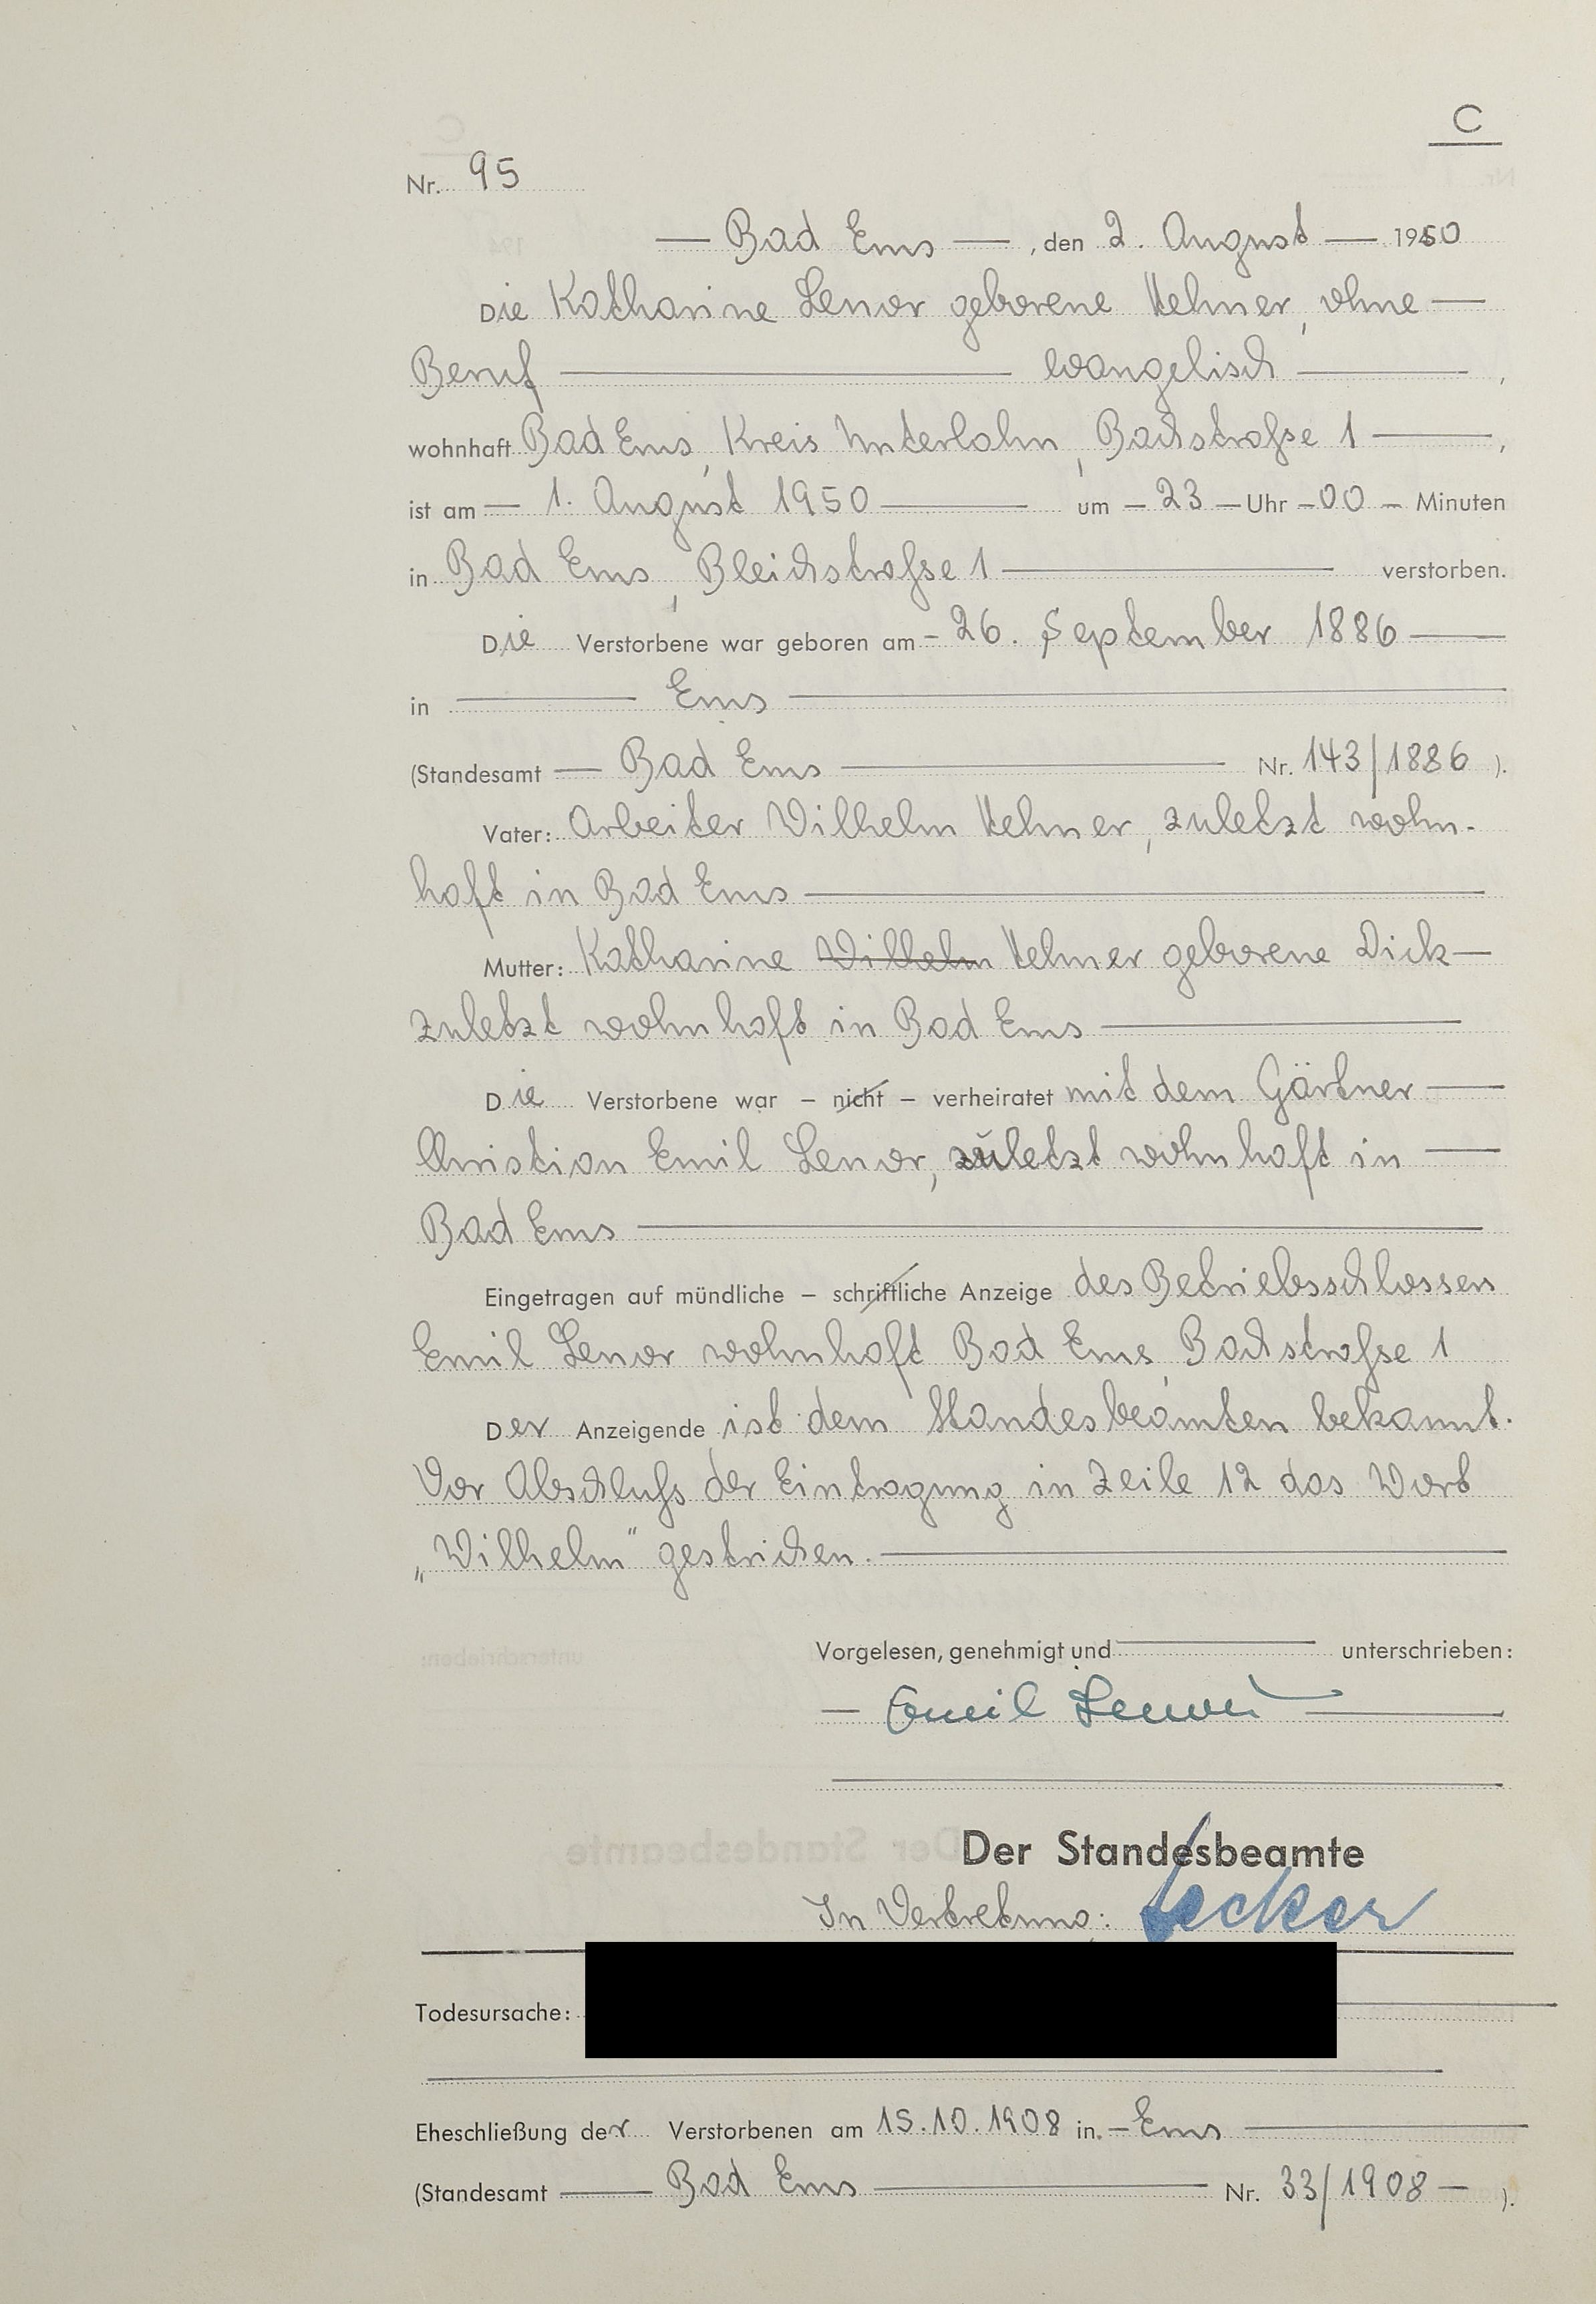 C
Nr. 95
— Bad Ems —, den 2. August — 1950
Die Katharine Lenor geborene , ohne —
Beruf — evangelisch —,
wohnhaft Bad Ems, Kreis Unterlahn, Bachstraße 1 —,
ist am — 1. August 1950 — um — 23 — Uhr — 00 — Minuten
in Bad Ems, Bleichstraße 1 — verstorben.
Die Verstorbene war geboren am — 26. September 1886 —
in — Ems —
(Standesamt — Bad Ems — Nr. 143/1886 ).
Vater: Arbeiter Wilhelm , zuletzt wohn-
haft in Bad Ems —
Mutter: Katharine Wilhelm geborene Dick —
zuletzt wohnhaft in Bad Ems —
Die Verstorbene war – nicht – verheiratet mit dem Gärtner —
Christian Emil Lenor, zuletzt wohnhaft in —
Bad Ems —
Eingetragen auf mündliche – schriftliche Anzeige des Betriebsschlossers
Emil Lenor wohnhaft Bad Ems, Bachstraße 1
Der Anzeigende ist dem Standesbeamten bekannt.
Vor Abschluß der Eintragung in Zeile 12 das Wort
„Wilhelm" gestrichen. —
Vorgelesen, genehmigt und — unterschrieben:
— Emil Lenor —
Der Standesbeamte
In Vertretung:
Todesursache:
Eheschließung der Verstorbenen am 15.10.1908 in — Ems —
(Standesamt — Bad Ems — Nr. 33/1908 — ).